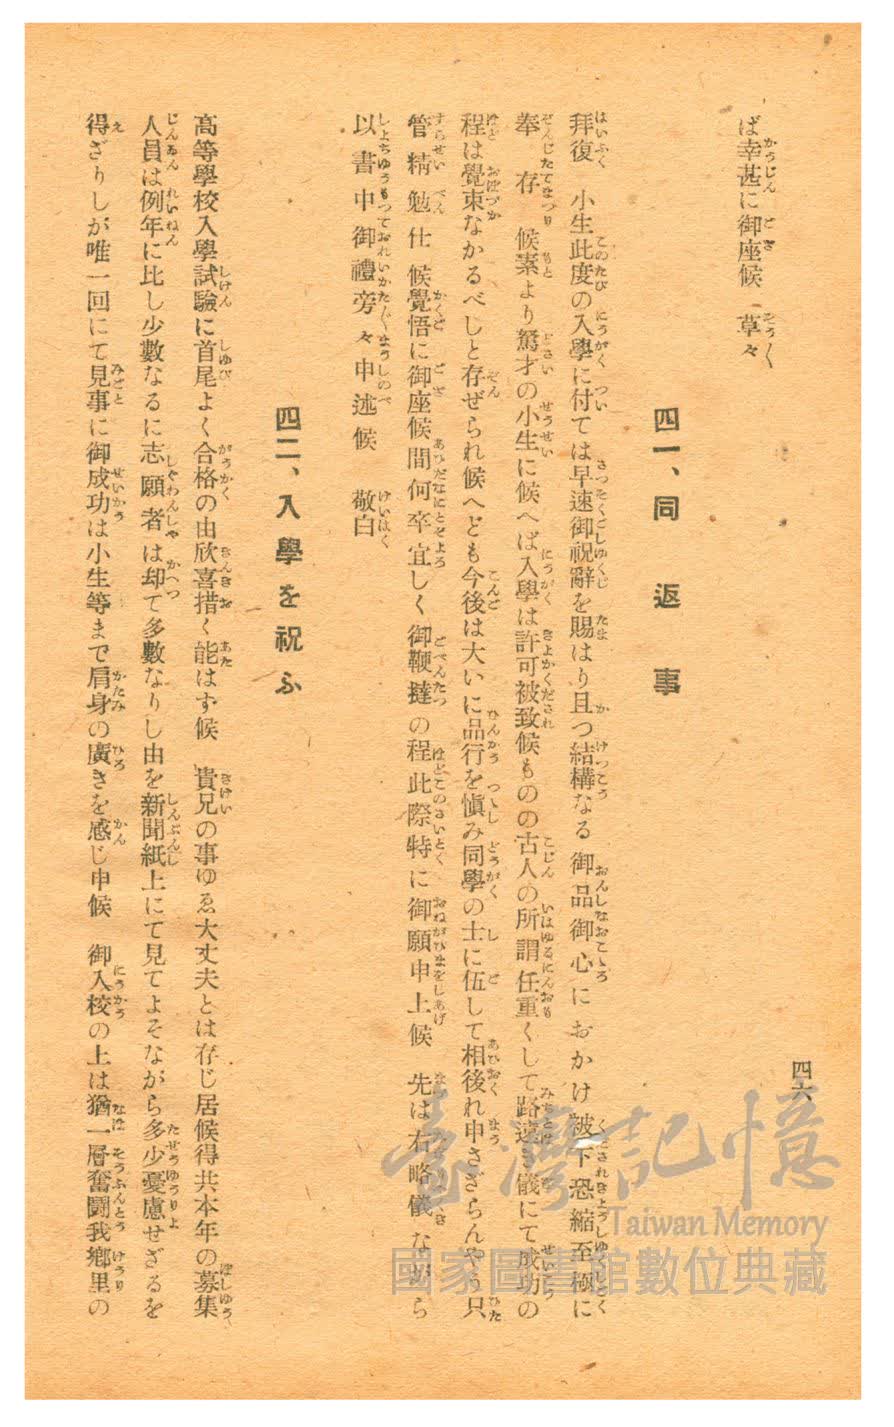 四六
ば幸甚に御座候　草々
四一、同返事
拜復　小生此度の入學に付ては早速御祝辭を賜はり且つ結構なる御品御心におかけ被下恐縮至極に
奉存候素より駑才の小生に候へば入學は許可被致候ものの古人の所謂任重くして路遠き儀にて成功の
程は覺束なかるべしと存ぜられ候へども今後は大いに品行を愼み同學の士に伍して相後れ申さざらんやう只
管精勉仕候覺悟に御座候間何卒宜しく御鞭撻の程此際特に御願申上候　先は右略儀ながら
以書中御禮旁々申述候　敬白
四二、入學を祝ふ
高等學校入學試驗に首尾よく合格の由欣喜措く能はず候　貴兄の事ゆゑ大丈夫とは存じ居候得共本年の募集
人員は例年に比し少數なるに志願者は却て多數なりし由を新聞紙上にて見てよそながら多少憂慮せざるを
得ざりしが唯一回にて見事に御成功は小生等まで肩身の廣きを感じ申候　御入校の上は猶一層奮鬪我鄕里の
臺灣記憶
Taiwan Memory
國家圖書館數位典藏